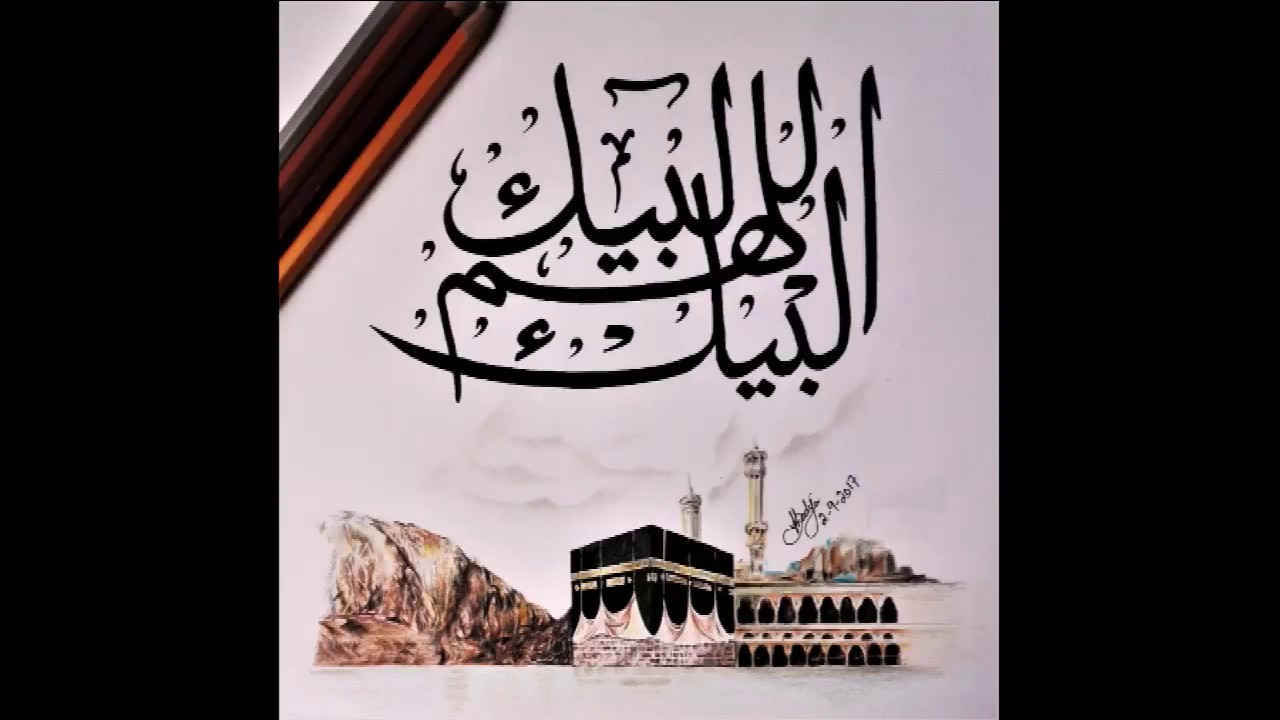 لبيك اللهم لبيك
2-9-2017